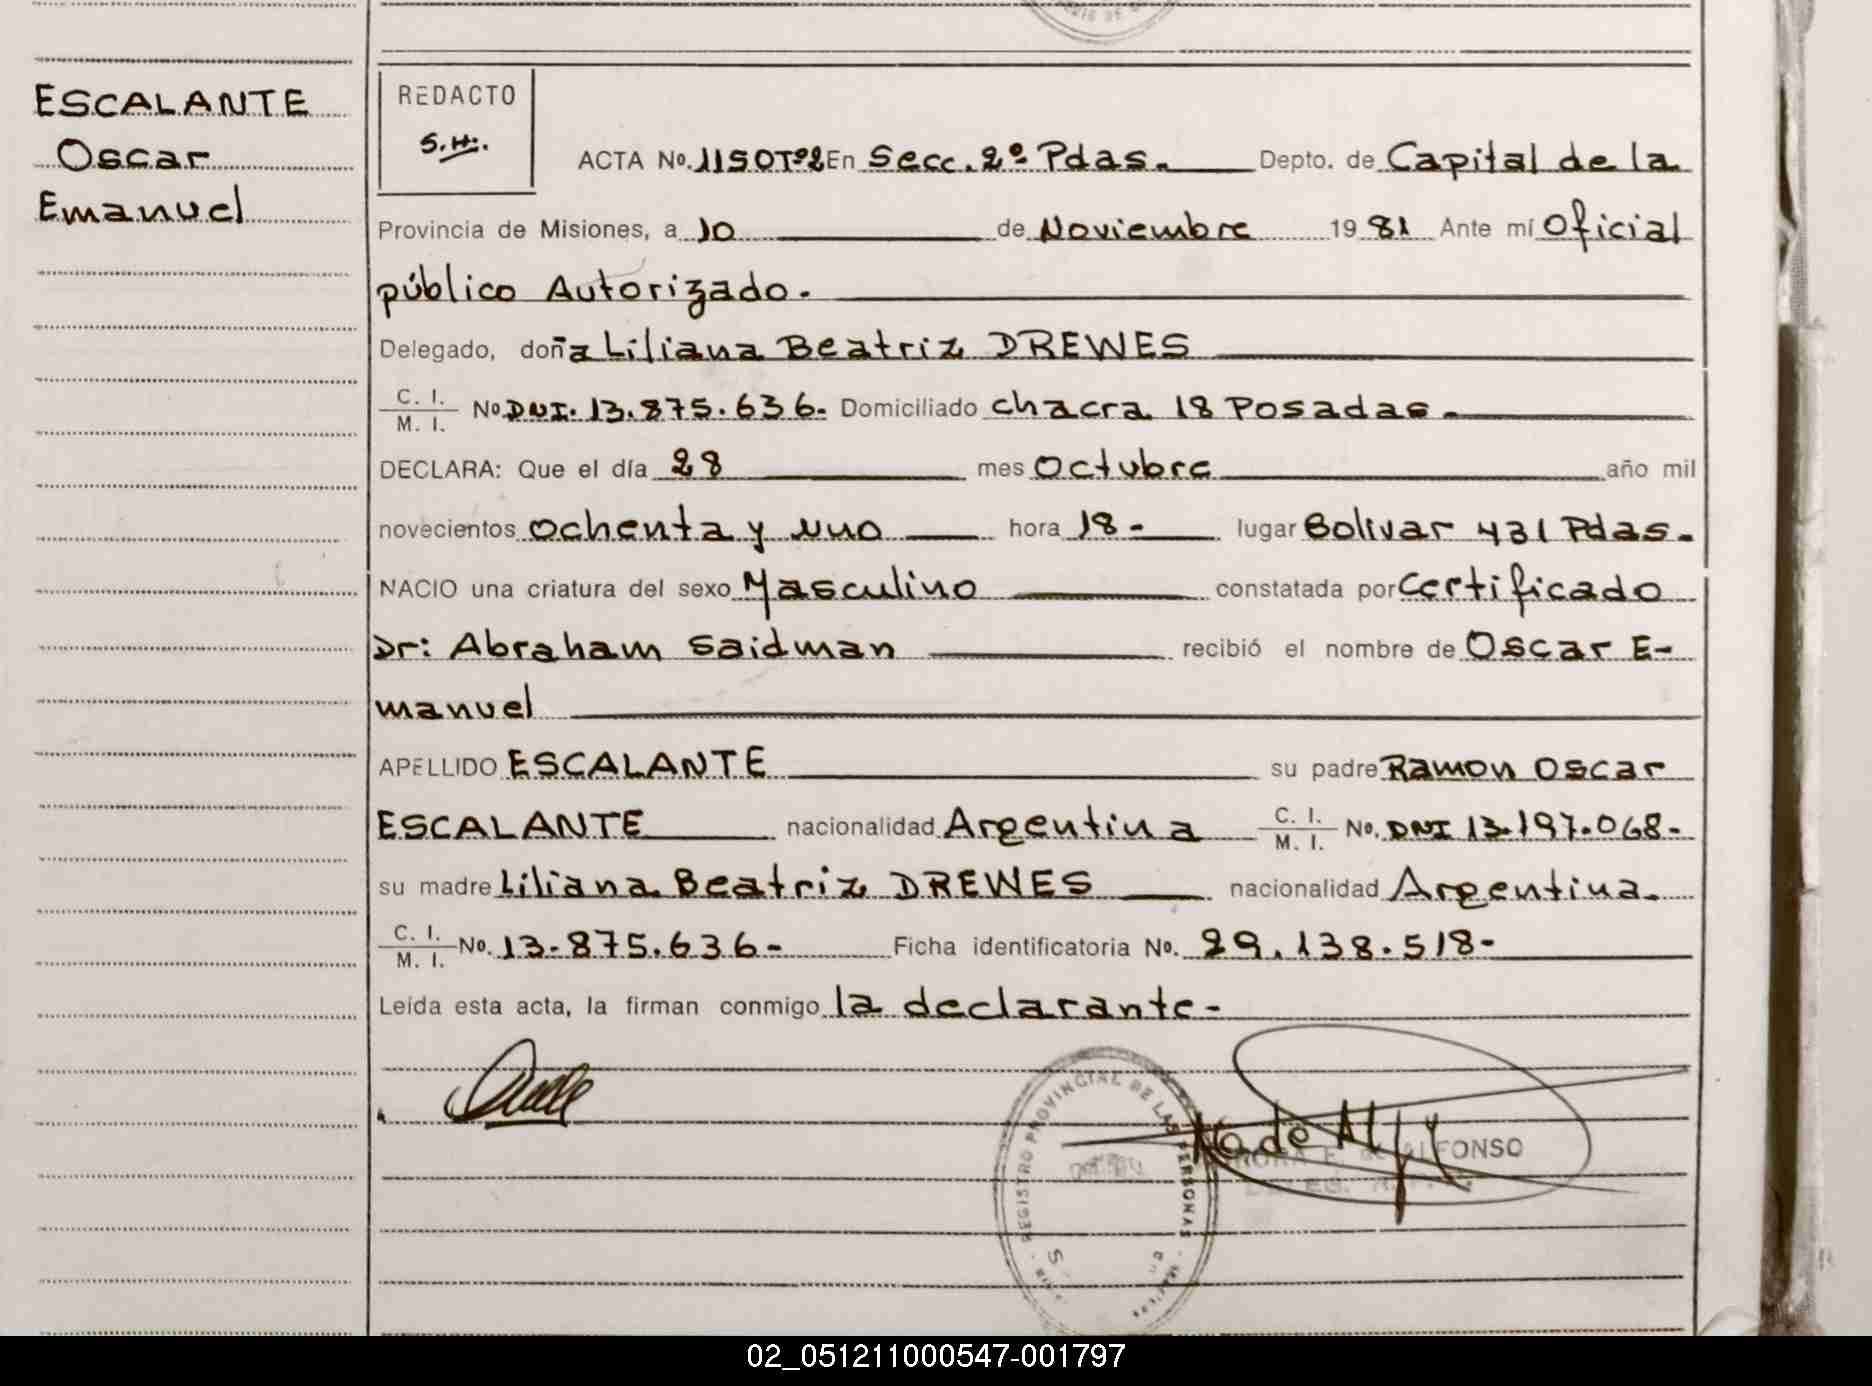 ESCALANTE
Oscar
Emanuel
REDACTO
S.H.
ACTA No. 1150Tº2 En Secc. 2º Pdas. Depto. de Capital de la
Provincia de Misiones, a 10 de Noviembre 1981 Ante mí Oficial
público Autorizado.
Delegado, doña Liliana Beatriz DREWES
C. I.
M. I. No. DNI. 13.875.636. Domiciliado chacra 18 Posadas.
DECLARA: Que el día 28 mes Octubre año mil
novecientos ochenta y uno hora 18- lugar Bolivar 431 Pdas.
NACIO una criatura del sexo Masculino constatada por Certificado
Dr: Abraham Saidman recibió el nombre de Oscar E-
manuel
APELLIDO ESCALANTE su padre Ramon Oscar
ESCALANTE nacionalidad Argentina C. I.
M. I. No. DNI 13.197.068-
su madre Liliana Beatriz DREWES nacionalidad Argentina.
C. I.
M. I. No. 13-875.636- Ficha identificatoria No. 29.138.518-
Leída esta acta, la firman conmigo la declarante-
REGISTRO PROVINCIAL DE LAS PERSONAS
de ALFONSO
02_051211000547-001797